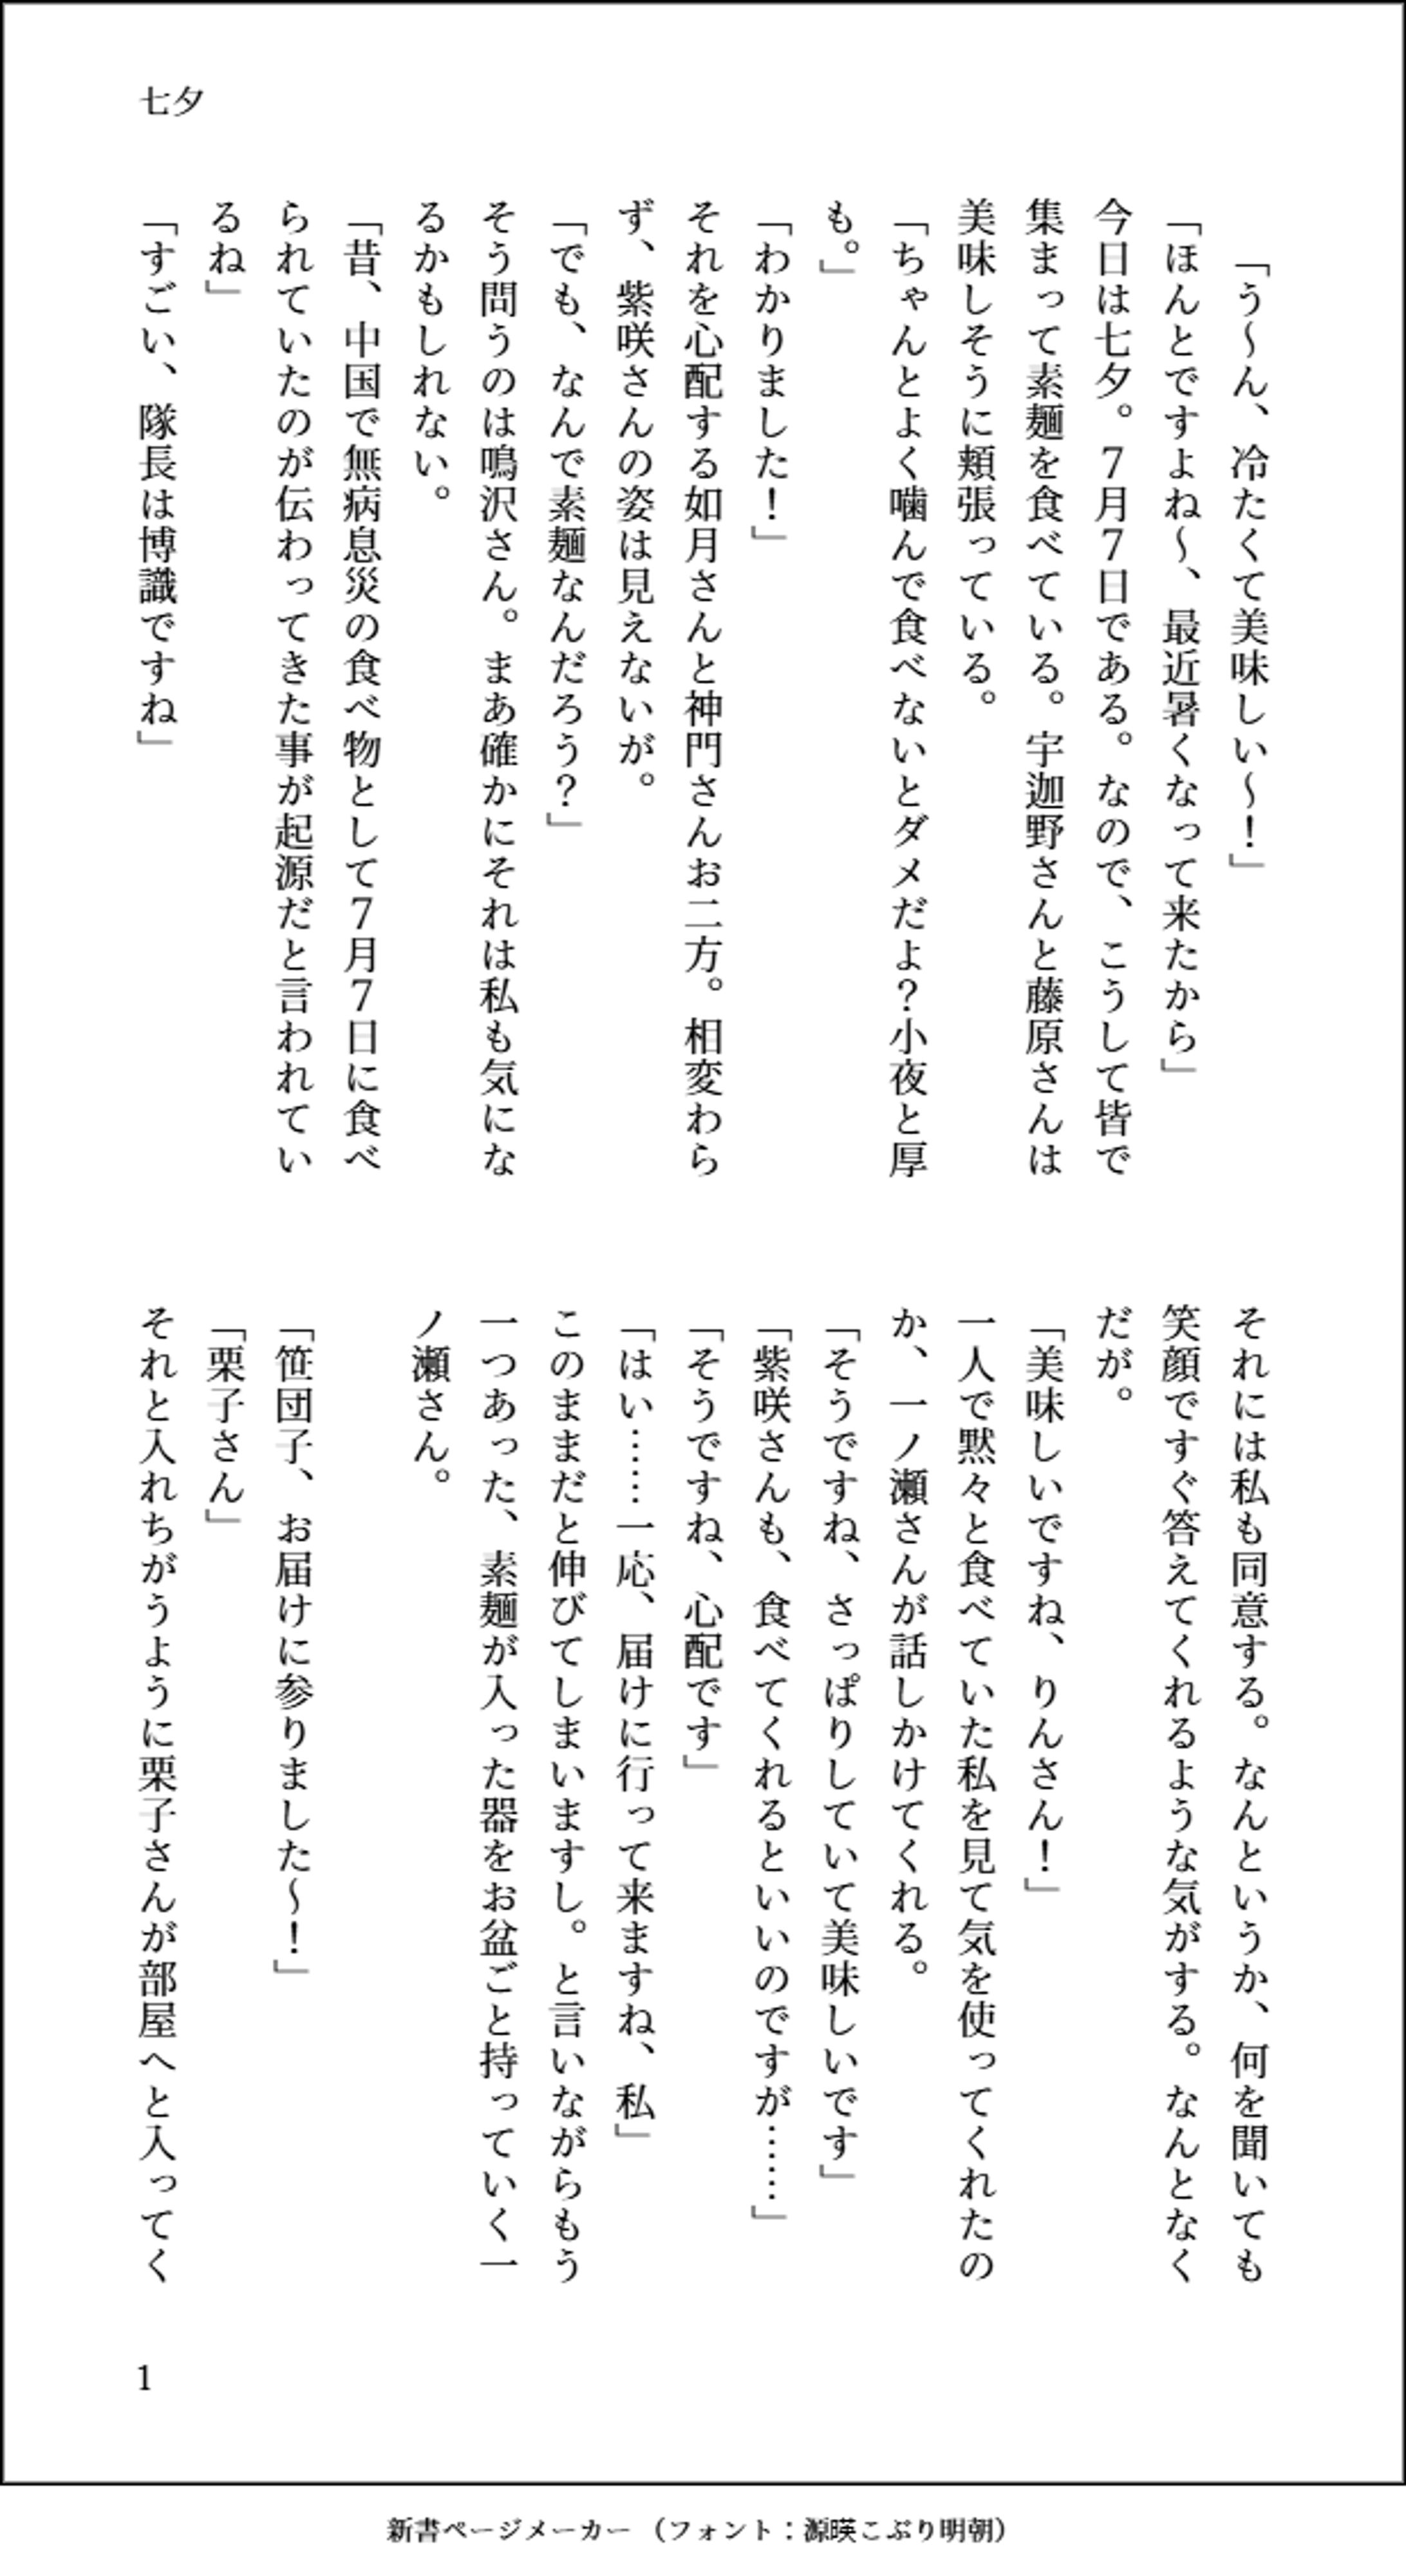 七夕
「う～ん、冷たくて美味しい～！」
「ほんとですよね～、最近暑くなって来たから」
今日は七夕。７月７日である。なので、こうして皆で
集まって素麺を食べている。宇迦野さんと藤原さんは
美味しそうに頬張っている。
「ちゃんとよく噛んで食べないとダメだよ？小夜と厚
も。」
「わかりました！」
それを心配する如月さんと神門さんお二方。相変わら
ず、紫咲さんの姿は見えないが。
「でも、なんで素麺なんだろう？」
そう問うのは鳴沢さん。まあ確かにそれは私も気にな
るかもしれない。
「昔、中国で無病息災の食べ物として７月７日に食べ
られていたのが伝わってきた事が起源だと言われてい
るね」
「すごい、隊長は博識ですね」
それには私も同意する。なんというか、何を聞いても
笑顔ですぐ答えてくれるような気がする。なんとなく
だが。
「美味しいですね、りんさん！」
一人で黙々と食べていた私を見て気を使ってくれたの
か、一ノ瀬さんが話しかけてくれる。
「そうですね、さっぱりしていて美味しいです」
「紫咲さんも、食べてくれるといいのですが……」
「そうですね、心配です」
「はい……一応、届けに行って来ますね、私」
このままだと伸びてしまいますし。と言いながらもう
一つあった、素麺が入った器をお盆ごと持っていく一
ノ瀬さん。
「笹団子、お届けに参りました～！」
「栗子さん」
それと入れちがうように栗子さんが部屋へと入ってく
1
新書ページメーカー （フォント：源暎こぶり明朝）